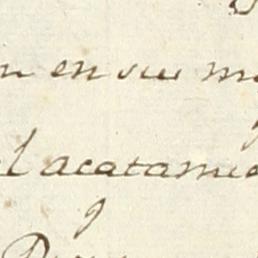 n en sus m
el acatamie